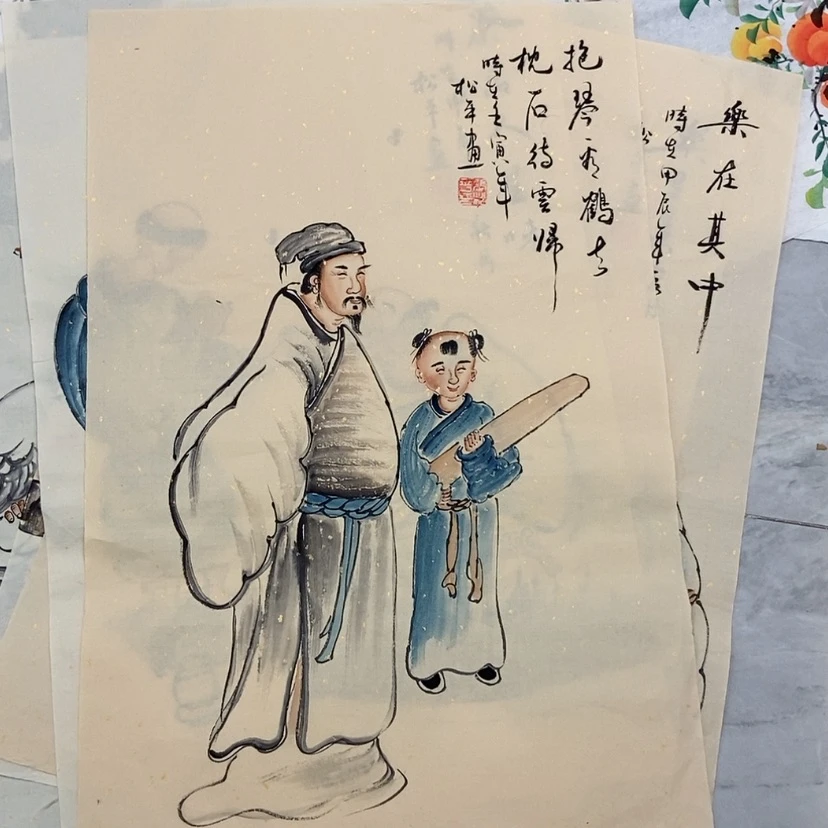 抱琴看鶴去
枕石待雲歸
時在壬寅年
松年畫
樂在其中
時在甲辰年